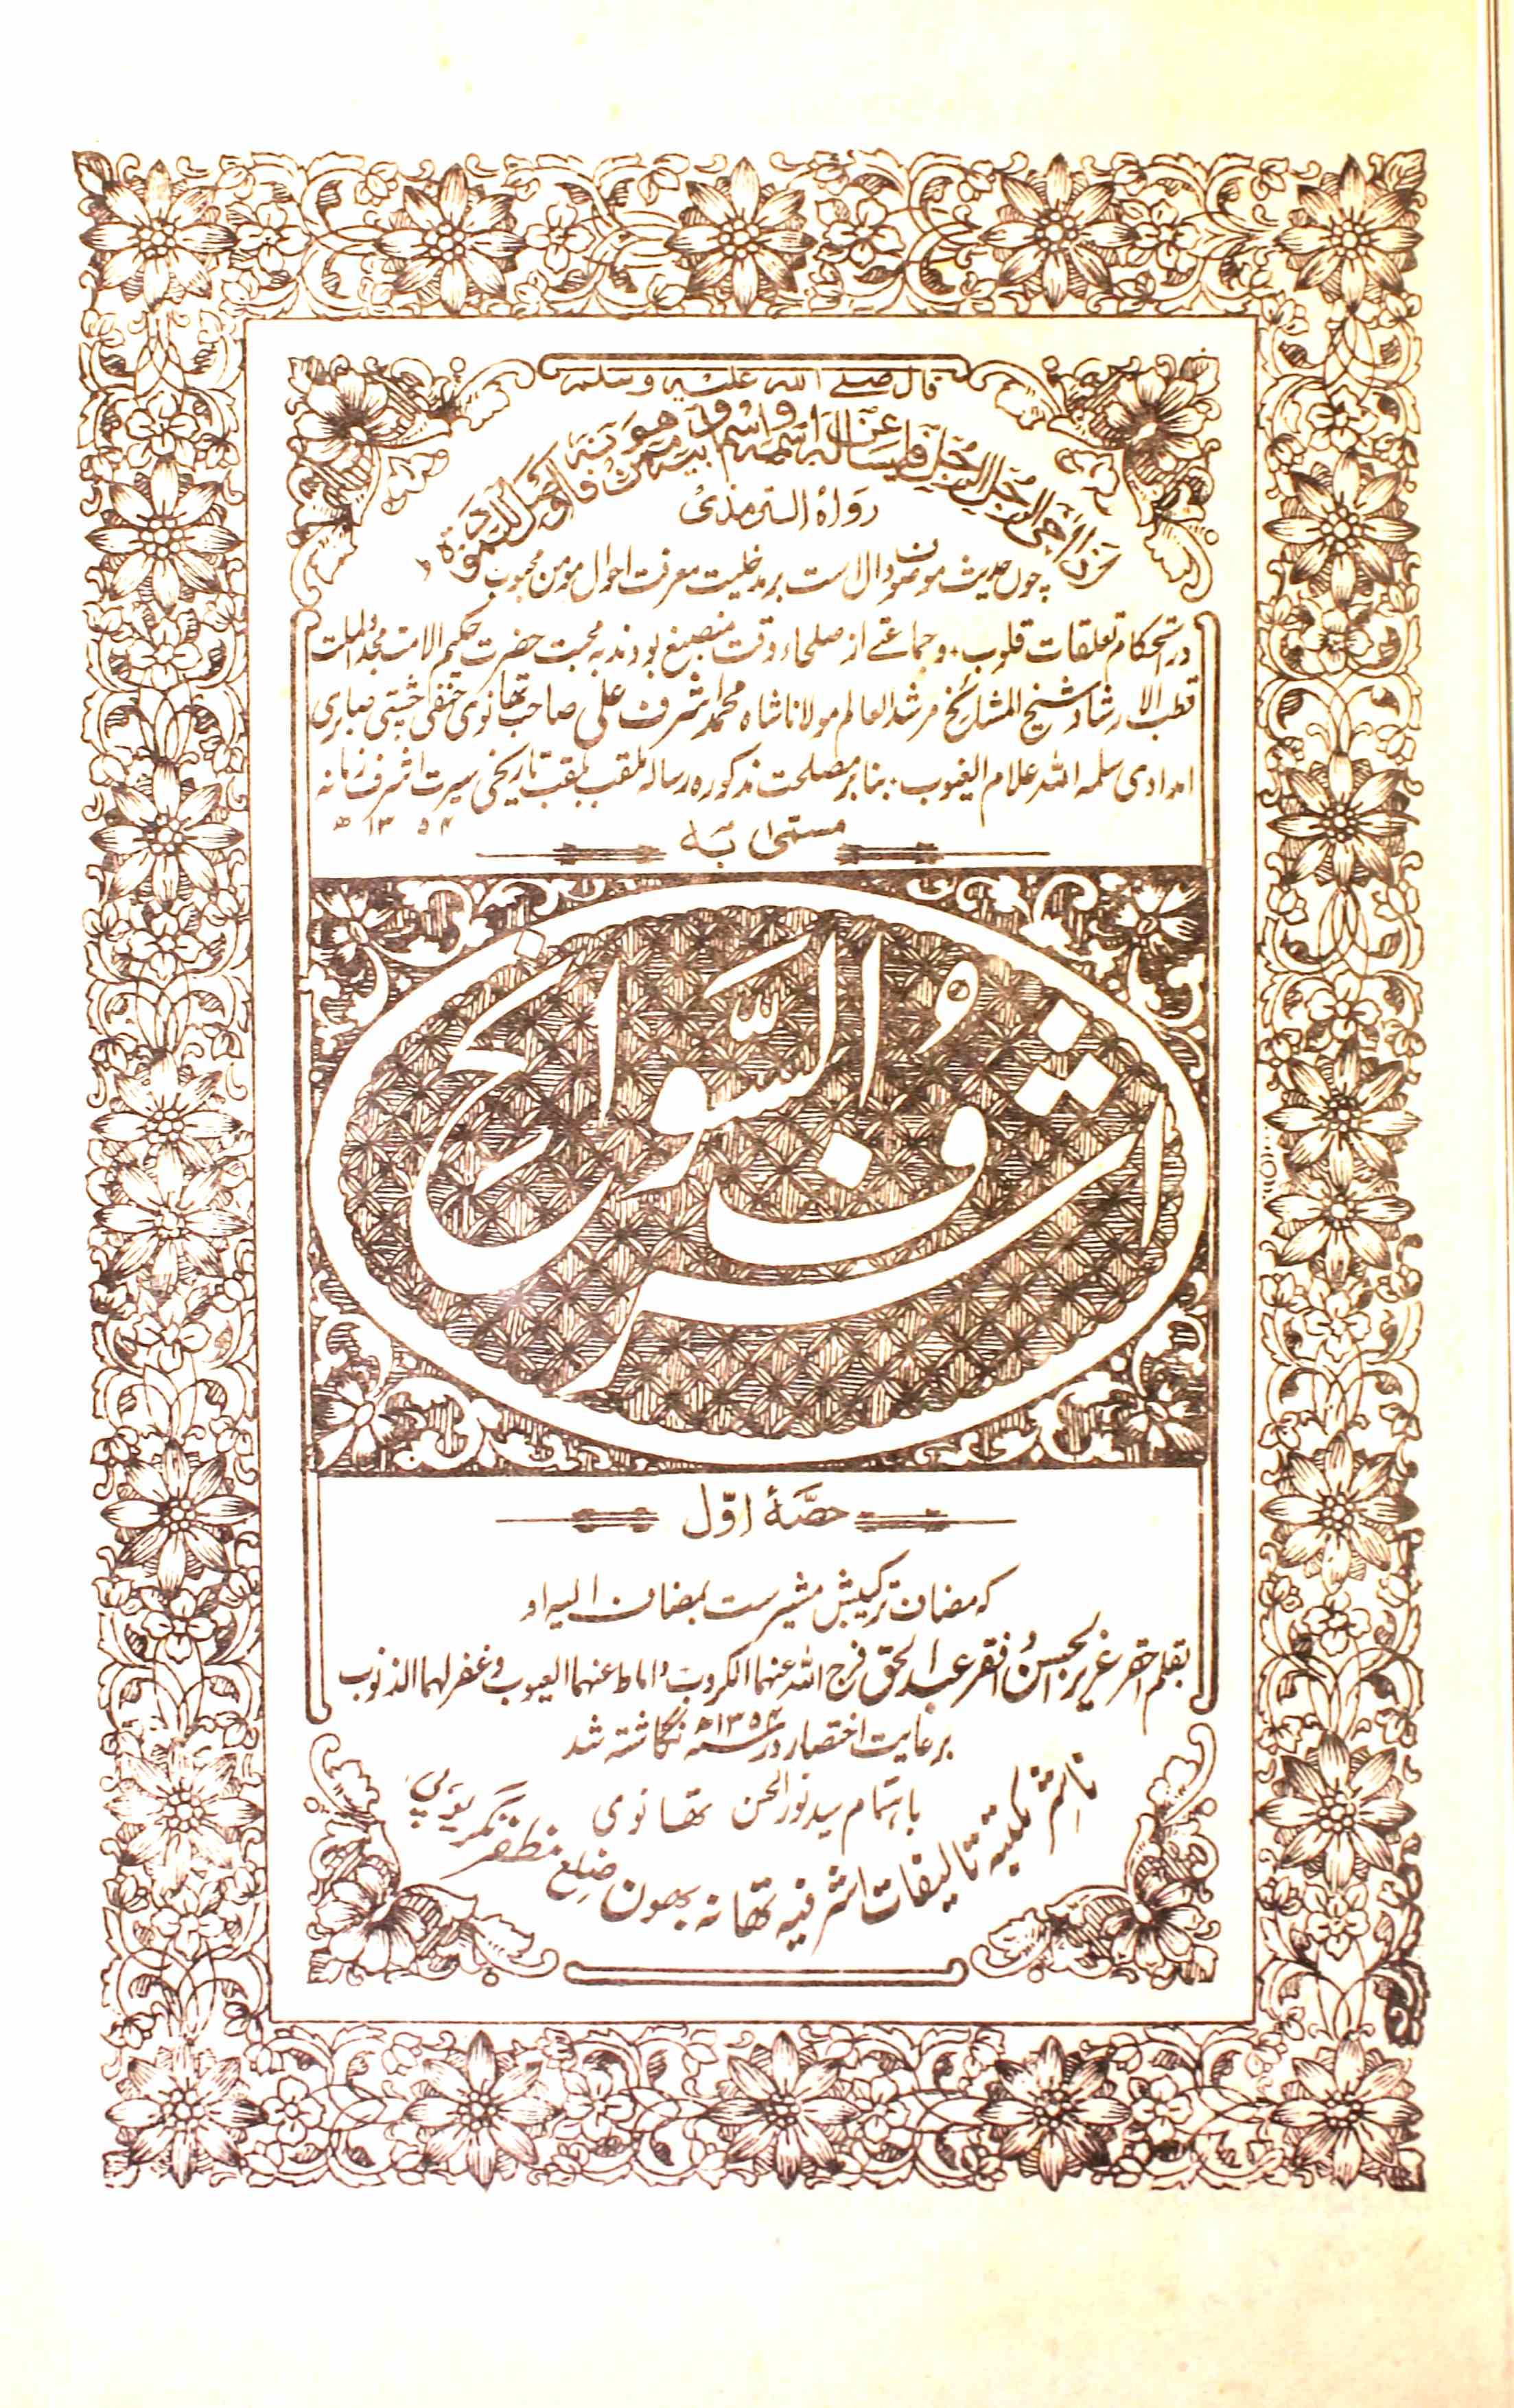 قال صلے اللہ علیہ وسلم
اذا آخی الرجل الرجل فلیسألہ عن اسمہ واسم ابیہ وممن ھو فانہ اوصل للمودۃ
رواہ الترمذی
چوں حدیث موصوف دال است بر مدخلیت معرفت احوال مومن محبوب
در استحکام تعلقات قلوب، و جماعتے از صلحاء وقت منصبغ بودند بہ محبت حضرت حکیم الامت مجدد الملت
قطب الارشاد شیخ المشائخ مرشد العالم مولانا شاہ محمد اشرف علی صاحب تھانوی حنفی چشتی صابری
امدادی سلمہ اللہ علام الغیوب، بنا بر مصلحت مذکورہ رسالہ ملقب بلقب تاریخی سیرت اشرف زمانہ
۱۳۵۴ھ
مسمّٰی بہ
اشرفُ السَّوانح
حصّۂ اوّل
کہ مضاف ترکیبش مشیر ست بمضاف الیہ او
بقلم احقر عزیز الحسنؒ و افقر عبد الحق فرج اللہ عنہما الکروب و اماط عنہما العیوب و غفر لہما الذنوب
برعایت اختصار در ۱۳۵۴ھ نگاشتہ شد
باہتمام سید نور الحسن تھانوی
ناشر مکتبہ تالیفات اشرفیہ تھانہ بھون ضلع مظفر نگر یو، پی،